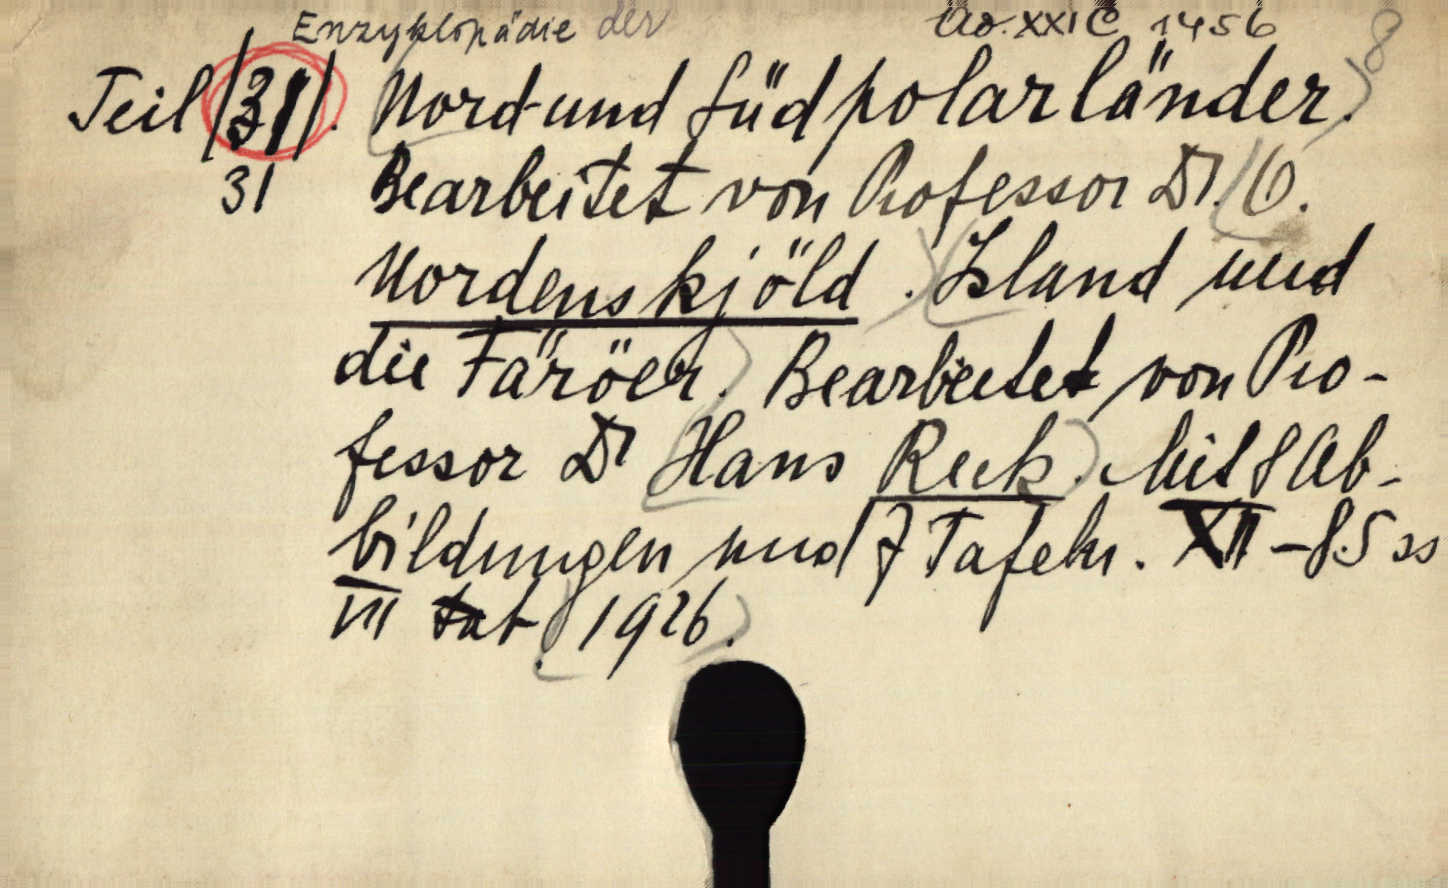 Enzyklopädie der Ao. XXI C 1456
8
Teil 31. Nord- und Südpolarländer.
31 Bearbeitet von Professor Dr. O.
Nordenskjöld. Island und
die Färöer. Bearbeitet von Pro-
fessor Dr Hans Reck. Mit 8 Ab-
bildungen und 7 Tafeln. XII - 85 ss
VII tab. 1926.